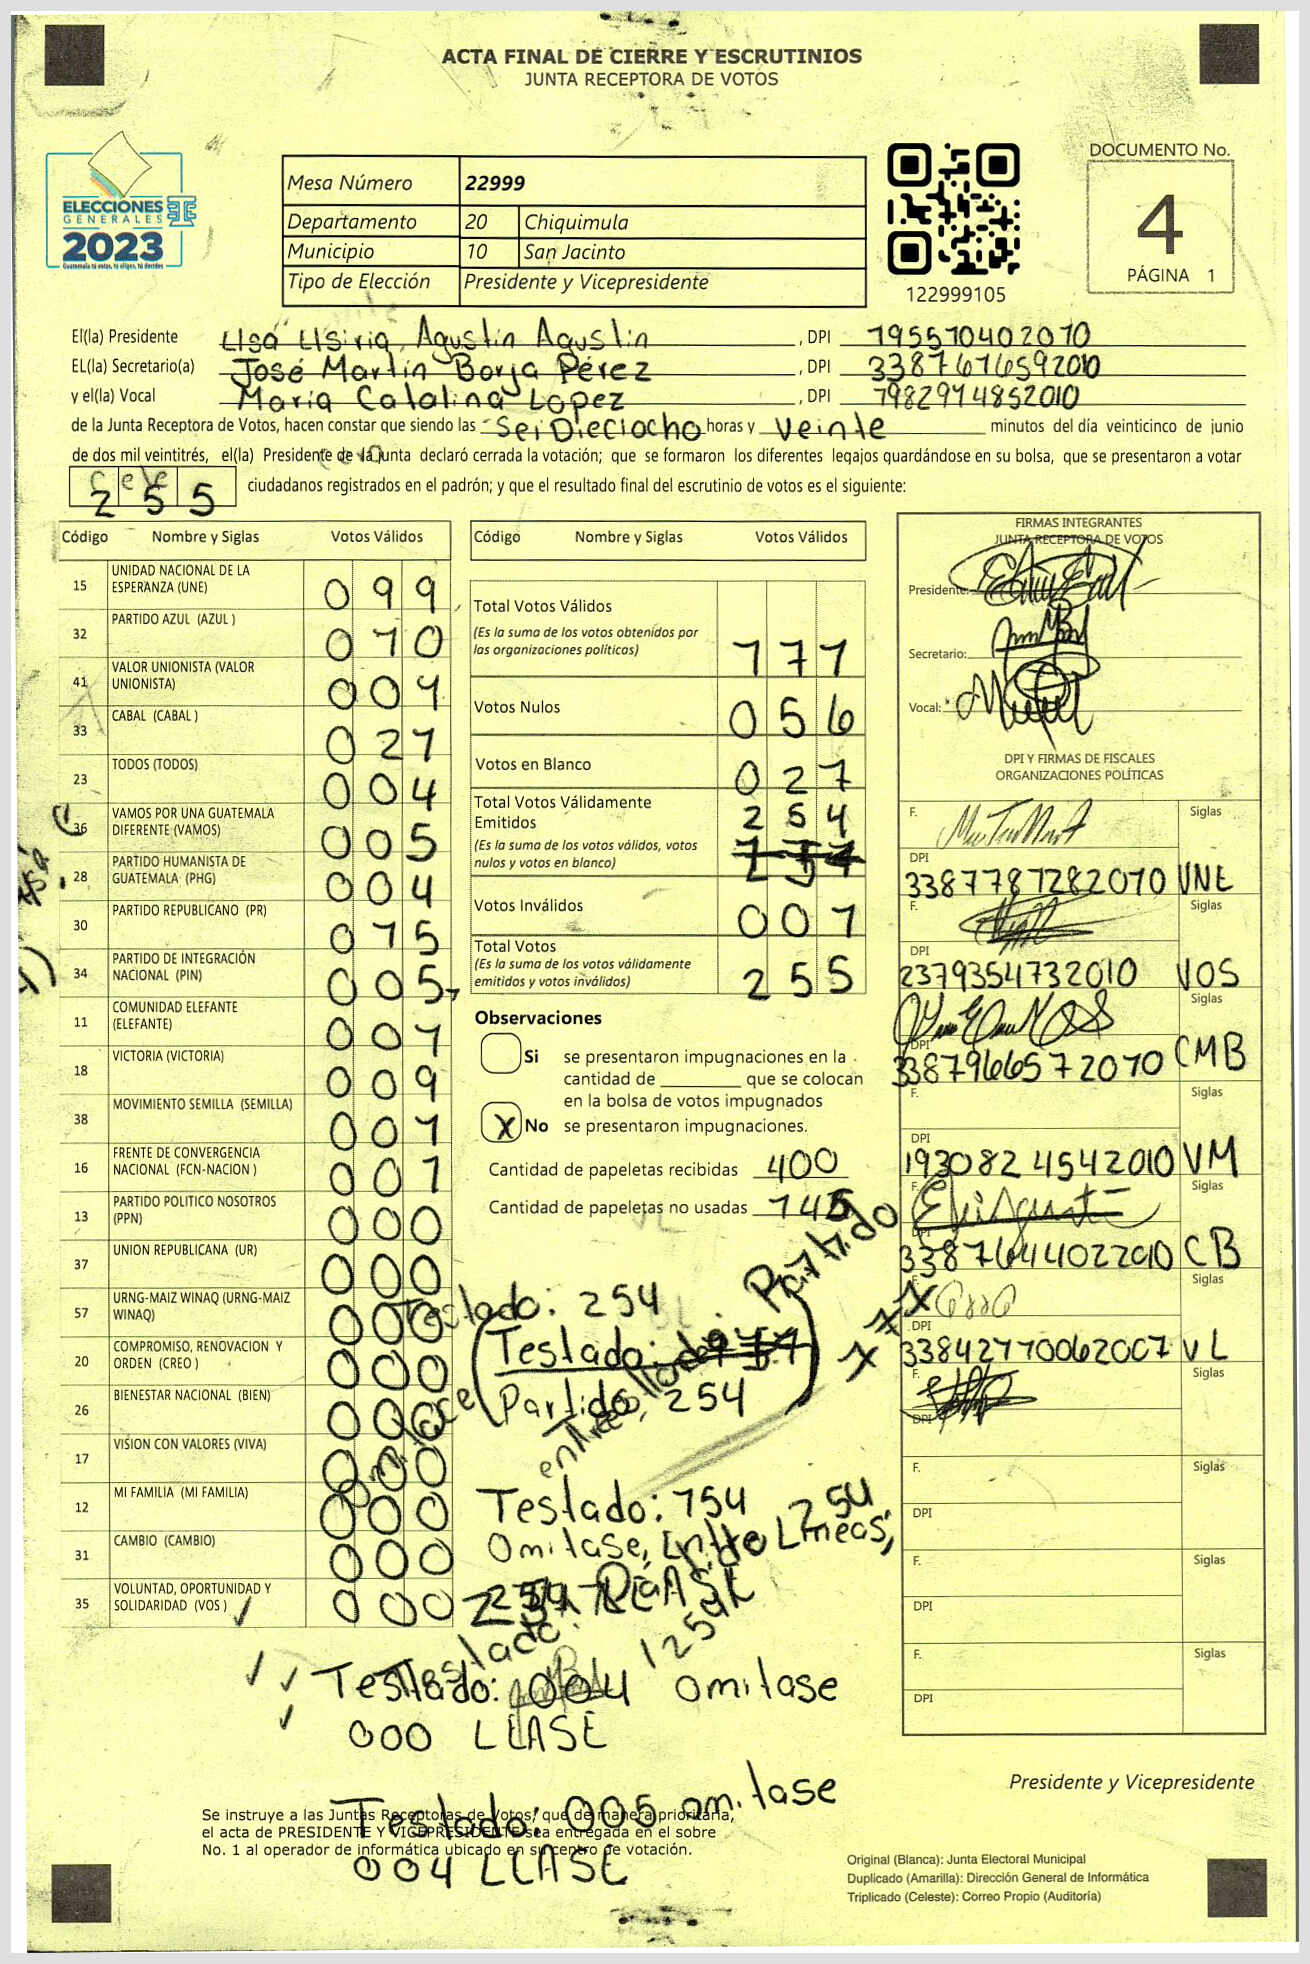 ACTA FINAL DE CIERRE Y ESCRUTINIOS
JUNTA RECEPTORA DE VOTOS
ELECCIONES
GENERALES
2023
Guatemala tú votas, tú eliges, tú decides
Mesa Número 22999
Departamento 20 Chiquimula
Municipio 10 San Jacinto
Tipo de Elección Presidente y Vicepresidente
122999105
DOCUMENTO No.
4
PÁGINA 1
El(la) Presidente Agustín Agustín , DPI 795570402070
EL(la) Secretario(a) José Martín Borja Pérez , DPI 3387676592010
y el(la) Vocal María Catalina Lopez , DPI 7982974852010
de la Junta Receptora de Votos, hacen constar que siendo las Sei Dieciocho horas y Veinte minutos del día veinticinco de junio
de dos mil veintitrés, el(la) Presidente de la Junta declaró cerrada la votación; que se formaron los diferentes legajos guardándose en su bolsa, que se presentaron a votar
255 ciudadanos registrados en el padrón; y que el resultado final del escrutinio de votos es el siguiente:
Código Nombre y Siglas Votos Válidos
15 UNIDAD NACIONAL DE LA ESPERANZA (UNE) 099
32 PARTIDO AZUL (AZUL ) 010
41 VALOR UNIONISTA (VALOR UNIONISTA) 001
33 CABAL (CABAL ) 021
23 TODOS (TODOS) 004
36 VAMOS POR UNA GUATEMALA DIFERENTE (VAMOS) 005
28 PARTIDO HUMANISTA DE GUATEMALA (PHG) 004
30 PARTIDO REPUBLICANO (PR) 015
34 PARTIDO DE INTEGRACIÓN NACIONAL (PIN) 005
11 COMUNIDAD ELEFANTE (ELEFANTE) 001
18 VICTORIA (VICTORIA) 009
38 MOVIMIENTO SEMILLA (SEMILLA) 001
16 FRENTE DE CONVERGENCIA NACIONAL (FCN-NACION ) 001
13 PARTIDO POLITICO NOSOTROS (PPN) 000
37 UNION REPUBLICANA (UR) 000
57 URNG-MAIZ WINAQ (URNG-MAIZ WINAQ) 000
20 COMPROMISO, RENOVACION Y ORDEN (CREO ) 000
26 BIENESTAR NACIONAL (BIEN) 000
17 VISION CON VALORES (VIVA) 000
12 MI FAMILIA (MI FAMILIA) 000
31 CAMBIO (CAMBIO) 000
35 VOLUNTAD, OPORTUNIDAD Y SOLIDARIDAD (VOS ) 000
Código Nombre y Siglas Votos Válidos
Total Votos Válidos 171
(Es la suma de los votos obtenidos por
las organizaciones políticas)
Votos Nulos 056
Votos en Blanco 027
Total Votos Válidamente
Emitidos 254
(Es la suma de los votos válidos, votos
nulos y votos en blanco)
Votos Inválidos 001
Total Votos 255
(Es la suma de los votos válidamente
emitidos y votos inválidos)
Observaciones
Si se presentaron impugnaciones en la
cantidad de ________ que se colocan
en la bolsa de votos impugnados
X No se presentaron impugnaciones.
Cantidad de papeletas recibidas 400
Cantidad de papeletas no usadas 145
Testado: 254
Testado:
Partido 254
Partido
Testado: 754
Omitase, Entre Lineas, 254
Testado: 004 omitase
000 LEASE
Testado: 005 omitase
004 LEASE
FIRMAS INTEGRANTES
JUNTA RECEPTORA DE VOTOS
Presidente:
Secretario:
Vocal:
DPI Y FIRMAS DE FISCALES
ORGANIZACIONES POLÍTICAS
F. Siglas
DPI
3387787282070 UNE
F. Siglas
DPI
2379354732010 VOS
F. Siglas
DPI
3387966572070 CMB
F. Siglas
DPI
1930824542010 VM
F. Siglas
DPI
3387644022010 CB
F. Siglas
DPI
33842770062007 VL
F. Siglas
DPI
F. Siglas
DPI
F. Siglas
DPI
F. Siglas
DPI
Presidente y Vicepresidente
Se instruye a las Juntas Receptoras de Votos, que de manera prioritaria,
el acta de PRESIDENTE Y VICEPRESIDENTE sea entregada en el sobre
No. 1 al operador de informática ubicado en su centro de votación.
Original (Blanca): Junta Electoral Municipal
Duplicado (Amarilla): Dirección General de Informática
Triplicado (Celeste): Correo Propio (Auditoría)